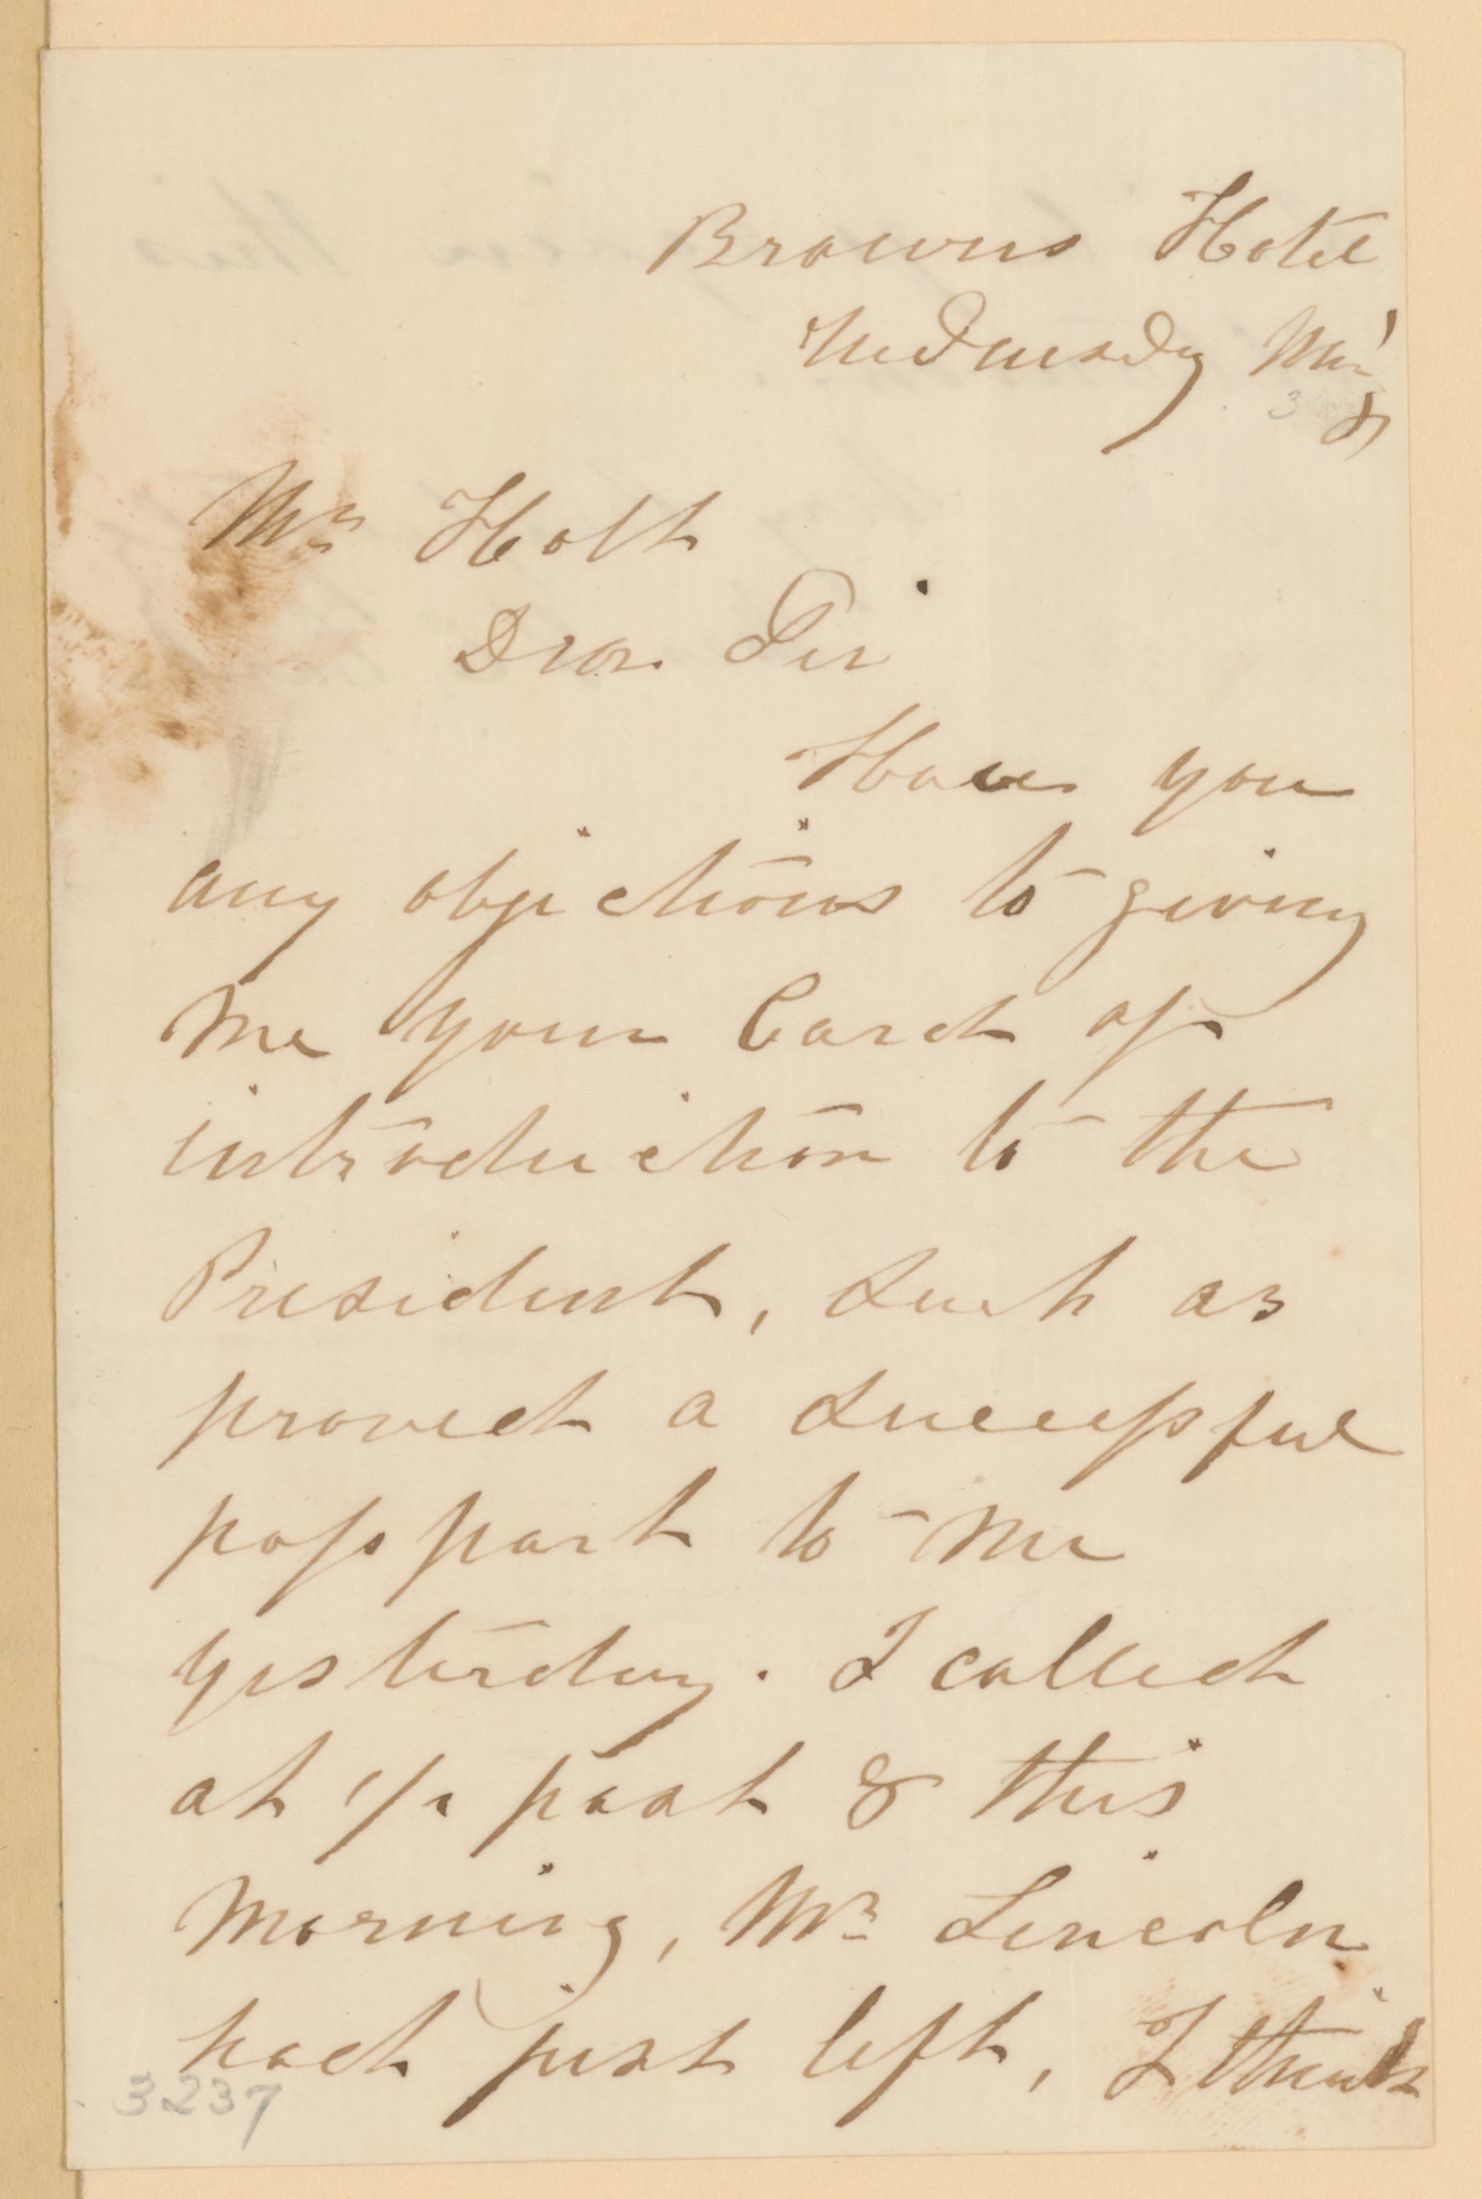 Browns Hotel
Wednesday
Mr Holt
Dear Sir
Have you
any objections to giving
me your Card of
introduction to the
President, such as
proved a successful
passport to me
yesterday. I called
at 1/2 past 8 this
morning, Mr Lincoln
had just left, I think
3237